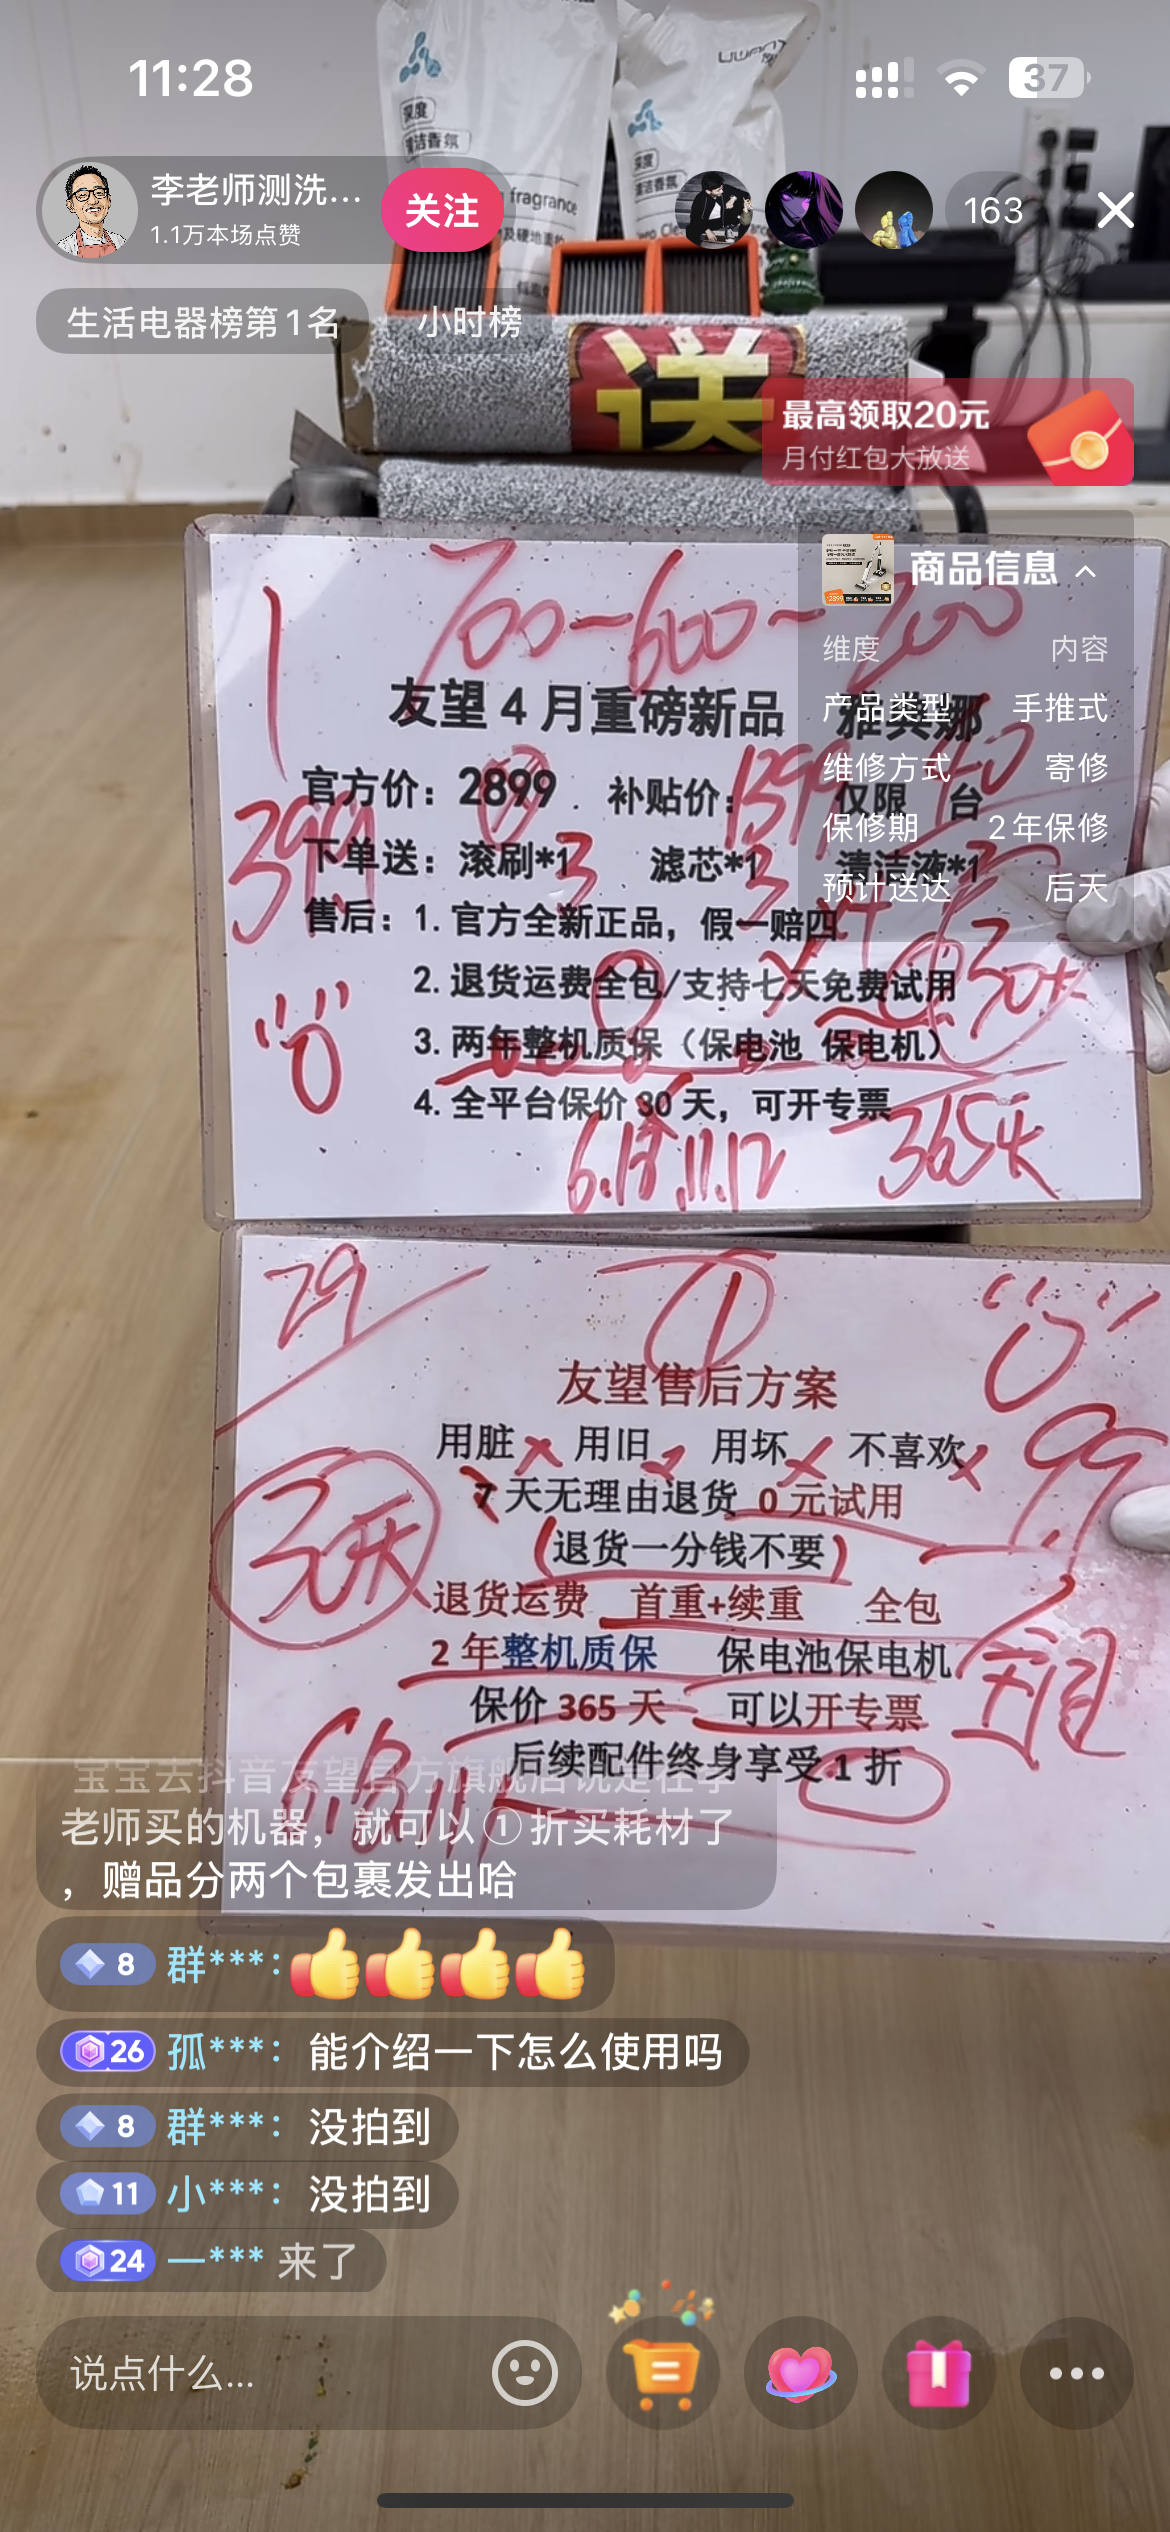 11:28
37
UWANT
深度
清洁香氛
深度
清洁香氛
fragrance
李老师测洗...
1.1万本场点赞
关注
163
生活电器榜第1名
小时榜
送
最高领取20元
月付红包大放送
商品信息
维度 内容
产品类型 手推式
维修方式 寄修
保修期 2年保修
预计送达 后天
1 700-600-200
友望4月重磅新品
官方价：2899 补贴价： 仅限 台
399
下单送：滚刷*1 3 滤芯*1 3 清洁液*1
售后：1.官方全新正品，假一赔四
2.退货运费全包/支持七天免费试用
30天
3.两年整机质保（保电池 保电机）
4.全平台保价30天，可开专票
6.18.11.12 365天
29 1
友望售后方案
用脏 用旧 用坏 不喜欢
7天无理由退货 0元试用
99
30天
（退货一分钱不要）
退货运费 首重+续重 全包
2年整机质保 保电池保电机
保价365天 可以开专票
后续配件终身享受1折
宝宝去抖音友望官方旗舰店说是在李
老师买的机器，就可以①折买耗材了
，赠品分两个包裹发出哈
8 群***：👍👍👍👍
26 孤***：能介绍一下怎么使用吗
8 群***：没拍到
11 小***：没拍到
24 一*** 来了
说点什么...